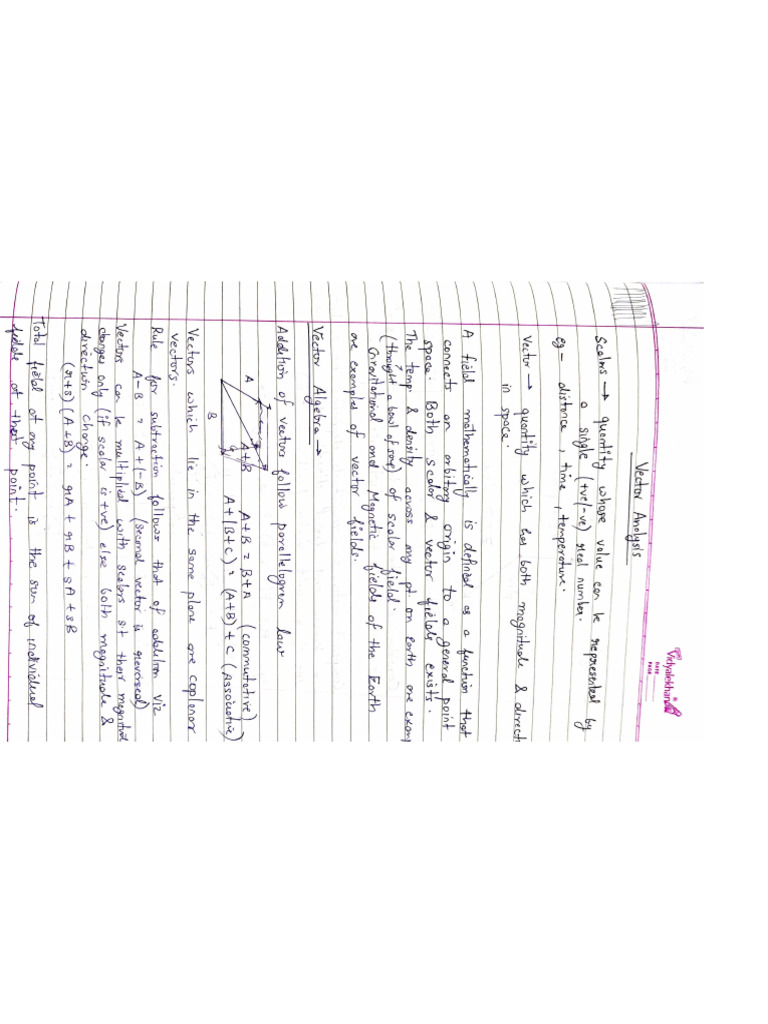 Vidyalekhan
DATE
PAGE
Vector Analysis
Scalars → quantity whose value can be represented by
a single (+ve/-ve) real number.
eg - distance, time, temperature.
Vector → quantity which has both magnitude & directi
in space.
A field mathematically is defined as a function that
connects an arbitrary origin to a general point
space. Both scalar & vector fields exists.
The temp. & density across any pt on earth are exam
(thought a bowl of soup) of scalar field.
Gravitational and Magnetic fields of the Earth
are examples of vector fields.
Vector Algebra →
Addition of vectors follow parallelogram law
A A+B A+B = B+A (commutative)
B A+(B+C) = (A+B)+C (Associative)
Vectors which lie in the same plane are coplanar
vectors.
Rule for subtraction follows that of addition viz
A-B = A+(-B) (second vector is reversed)
Vectors can be multiplied with scalars s.t their magnitud
changes only (if scalar is +ve) else both magnitude &
direction change.
(r+s)(A+B) = rA + rB + sA + sB
Total field at any point is the sum of individual
fields at that point.